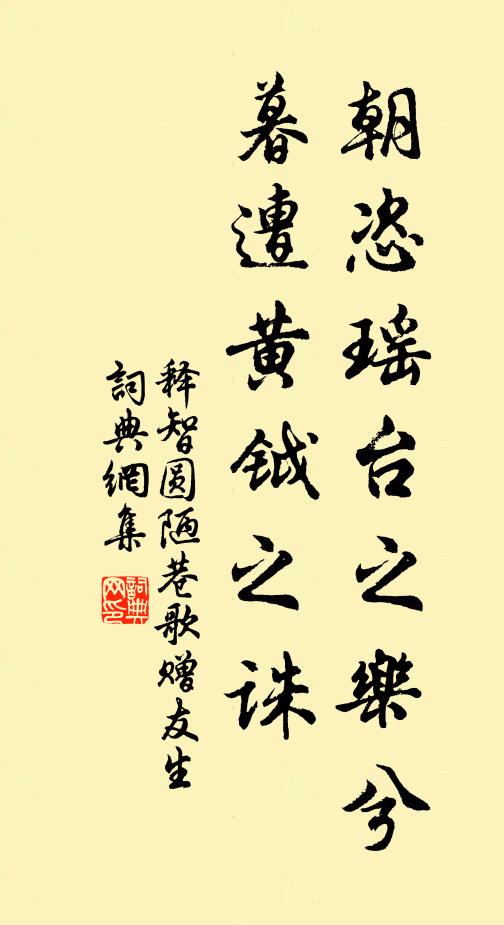 朝恣瑶台之樂兮
暮遭黄钺之诛
释智圆陋巷歌赠友生
詞典網集
詞典网印